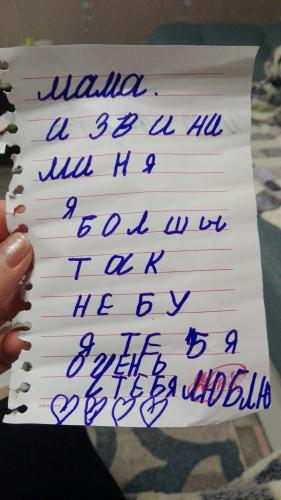 мама.
извини
миня
я
болшы
так
не бу
я тебя
очень
тебя люблю